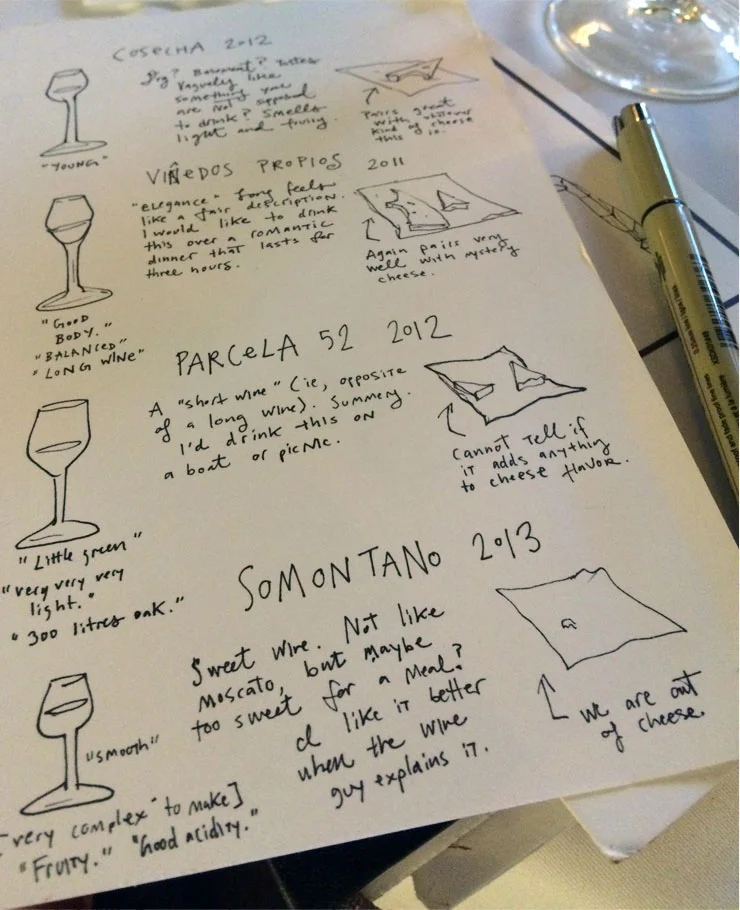 COSECHA 2012
Dry? Basement? Tastes
vaguely like
something you
are not supposed
to drink? Smells
light and fruity.
"YOUNG"
Pairs great
with whatever
kind of cheese
this is.
VIÑEDOS PROPIOS 2011
"elegance" feels
like a fair description.
I would like to drink
this over a romantic
dinner that lasts for
three hours.
"GOOD
BODY."
"BALANCED"
"LONG WINE"
Again pairs very
well with mystery
cheese.
PARCELA 52 2012
A "short wine" (ie, opposite
of a long wine). Summery.
I'd drink this on
a boat or picnic.
"Little green"
"very very very
light."
"300 litres oak."
Cannot tell if
it adds anything
to cheese flavor.
SOMONTANO 2013
Sweet wine. Not like
moscato, but maybe
too sweet for a meal?
I like it better
when the wine
guy explains it.
"smooth"
very complex" to make]
"Fruity." "Good acidity."
we are out
of cheese.